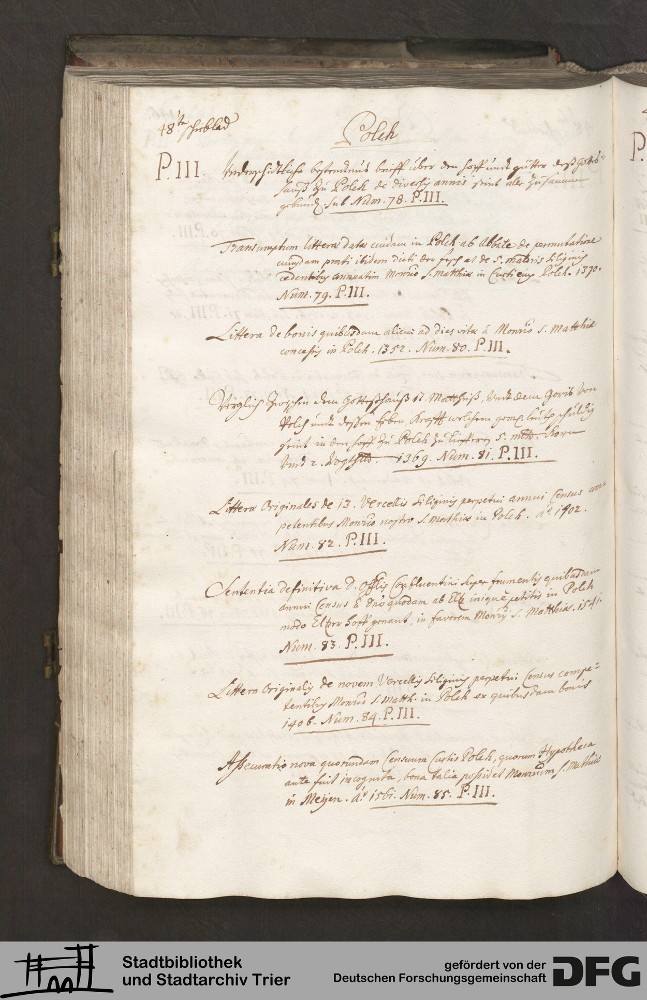 48te schublad
Polch
P.III. Underschidtliche bestendtnus brieff über den hoff undt gütter deß Gottes-
hauß zu Polch de diversis annis seint alle zusammen
gebundt. sub Num. 78. P.III.
Transumptum littera data cuidam in Polch ab Abbate de permutatione
cuiusdam prati ibidem dicti
cedentibus annuatim Monrio S. Matthiæ in Curti eius Polch. 1370.
Num. 79. P.III.
Littera de bonis quibusdam alicui ad dies vitæ à Monrio S. Matthiæ
concessis in Polch. 1352. Num. 80. P.III.
dem Gotteshauß St. Mattheiß, undt dem
Polch undt dessen Erben
seint in den hoff zu Polch zu lieffern 5. Korn
undt 2. 1369. Num. 81. P.III.
Litteræ Originales de 13. Vercellis siliginis perpetui annui Census com-
petentibus Monrio nostro S. Mathiæ in Polch. Ao 1402.
Num. 82. P.III.
Sententia definitiva D. Offlis Confluentini super frumentis quibusdam
annui Census à Dno quodam ab Eltz iniquè petitis in Polch
modo Eltzer hoff genant, in favorem Monrij S. Matthiæ. 1541.
Num. 83. P.III.
Littera Originalis de novem Vercellis siliginis perpetui Census compe-
tentibus Monrio S. Matth. in Polch ex quibusdam bonis
1406. Num. 84. P.III.
Assecuratio nova quorundam Censuum Curtis Polch, quorum Hypotheca
ante fuit incognita, bona talia possidet Monrium S. Matthiæ
in Meyen. Ao 1561. Num. 85. P.III.
P.
Stadtbibliothek
und Stadtarchiv Trier
gefördert von der
Deutschen Forschungsgemeinschaft
DFG